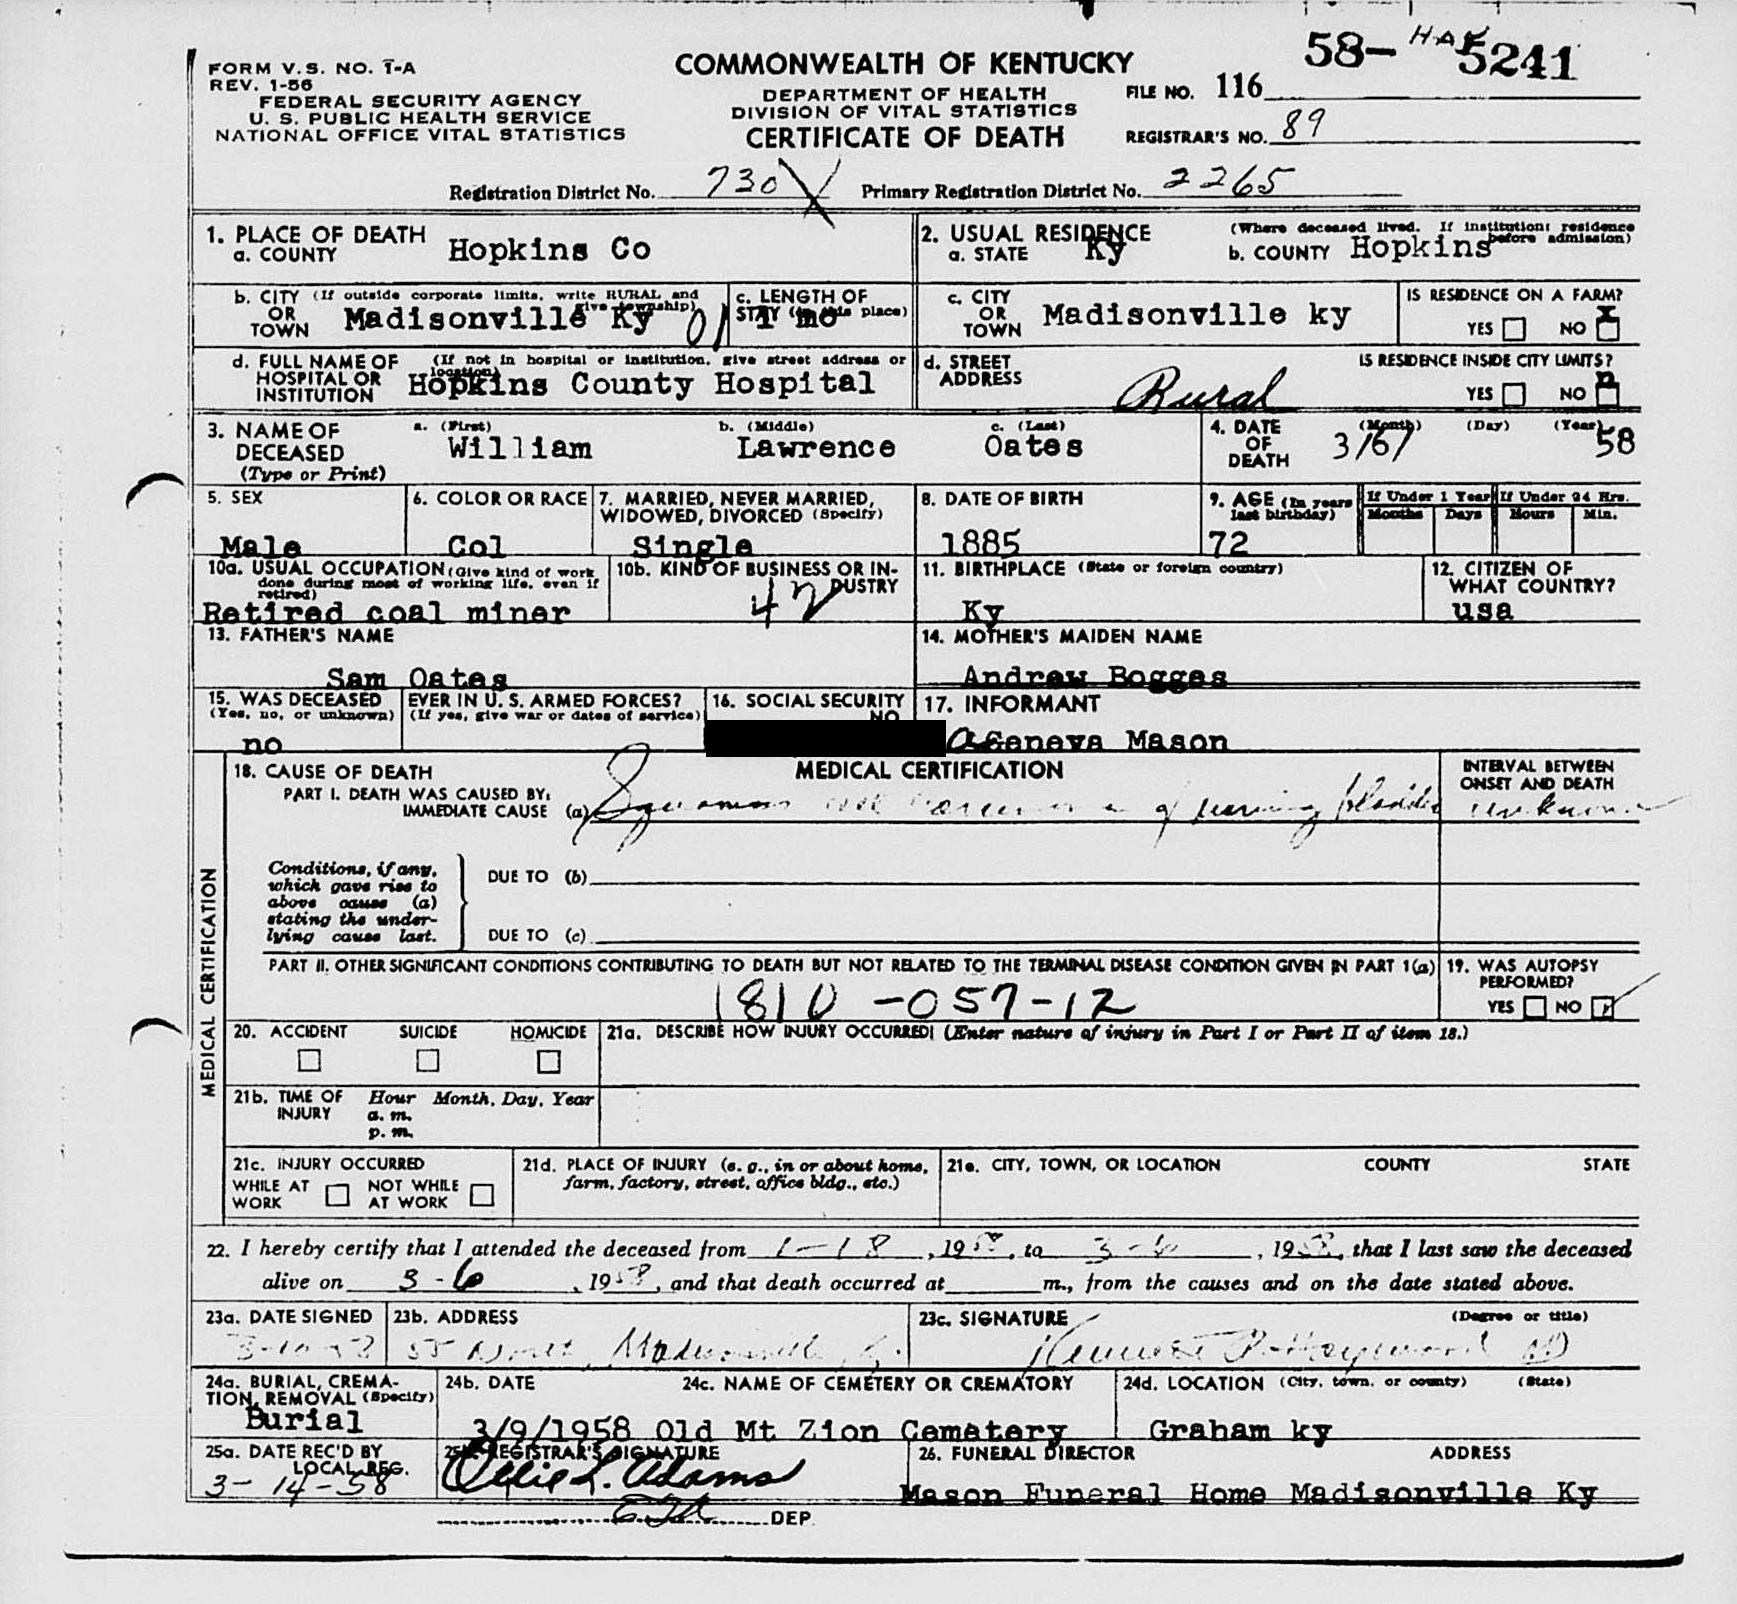 58- HAK 5241
FORM V.S. NO. 1-A
REV. 1-56
FEDERAL SECURITY AGENCY
U. S. PUBLIC HEALTH SERVICE
NATIONAL OFFICE VITAL STATISTICS
COMMONWEALTH OF KENTUCKY
DEPARTMENT OF HEALTH
DIVISION OF VITAL STATISTICS
CERTIFICATE OF DEATH
FILE NO. 116
REGISTRAR'S NO. 89
Registration District No. 730 Primary Registration District No. 2265
1. PLACE OF DEATH
a. COUNTY Hopkins Co
2. USUAL RESIDENCE (Where deceased lived. If institution: residence before admission)
a. STATE Ky b. COUNTY Hopkins
b. CITY (If outside corporate limits, write RURAL and give township)
OR
TOWN Madisonville Ky 01
c. LENGTH OF STAY (in this place) 1 mo
c. CITY
OR
TOWN Madisonville ky
IS RESIDENCE ON A FARM?
YES NO x
d. FULL NAME OF HOSPITAL OR INSTITUTION (If not in hospital or institution, give street address or location)
Hopkins County Hospital
d. STREET ADDRESS Rural
IS RESIDENCE INSIDE CITY LIMITS?
YES NO n
3. NAME OF DECEASED
(Type or Print)
a. (First) b. (Middle) c. (Last)
William Lawrence Oates
4. DATE OF DEATH (Month) (Day) (Year)
3/6/ 58
5. SEX
Male
6. COLOR OR RACE
Col
7. MARRIED, NEVER MARRIED, WIDOWED, DIVORCED (Specify)
Single
8. DATE OF BIRTH
1885
9. AGE (In years last birthday)
72
If Under 1 Year If Under 24 Hrs.
Months Days Hours Min.
10a. USUAL OCCUPATION (Give kind of work done during most of working life, even if retired)
Retired coal miner
10b. KIND OF BUSINESS OR INDUSTRY
42
11. BIRTHPLACE (State or foreign country)
Ky
12. CITIZEN OF WHAT COUNTRY?
usa
13. FATHER'S NAME
Sam Oates
14. MOTHER'S MAIDEN NAME
Andrew Bogges
15. WAS DECEASED EVER IN U. S. ARMED FORCES?
(Yes, no, or unknown) (If yes, give war or dates of service)
no
16. SOCIAL SECURITY NO.
17. INFORMANT
Geneva Mason
MEDICAL CERTIFICATION
18. CAUSE OF DEATH
PART I. DEATH WAS CAUSED BY:
IMMEDIATE CAUSE (a) Squamous cell carcinoma of urinary bladder
INTERVAL BETWEEN ONSET AND DEATH
unknown
Conditions, if any, which gave rise to above cause (a) stating the underlying cause last.
DUE TO (b)
DUE TO (c)
PART II. OTHER SIGNIFICANT CONDITIONS CONTRIBUTING TO DEATH BUT NOT RELATED TO THE TERMINAL DISEASE CONDITION GIVEN IN PART 1(a)
1810 -057-12
19. WAS AUTOPSY PERFORMED?
YES NO
MEDICAL CERTIFICATION
20. ACCIDENT SUICIDE HOMICIDE
21a. DESCRIBE HOW INJURY OCCURRED: (Enter nature of injury in Part I or Part II of item 18.)
21b. TIME OF INJURY Hour Month, Day, Year
a. m.
p. m.
21c. INJURY OCCURRED
WHILE AT WORK NOT WHILE AT WORK
21d. PLACE OF INJURY (e. g., in or about home, farm, factory, street, office bldg., etc.)
21e. CITY, TOWN, OR LOCATION COUNTY STATE
22. I hereby certify that I attended the deceased from 1-18, 1958, to 3-6, 1958, that I last saw the deceased
alive on 3-6, 1958, and that death occurred at m., from the causes and on the date stated above.
23a. DATE SIGNED
3-10-58
23b. ADDRESS
Madisonville, Ky.
23c. SIGNATURE (Degree or title)
24a. BURIAL, CREMATION, REMOVAL (Specify)
Burial
24b. DATE
3/9/1958
24c. NAME OF CEMETERY OR CREMATORY
Old Mt Zion Cemetery
24d. LOCATION (City, town, or county) (State)
Graham ky
25a. DATE REC'D BY LOCAL REG.
3-14-58
25b. REGISTRAR'S SIGNATURE
Ollie L. Adams
DEP.
26. FUNERAL DIRECTOR ADDRESS
Mason Funeral Home Madisonville Ky